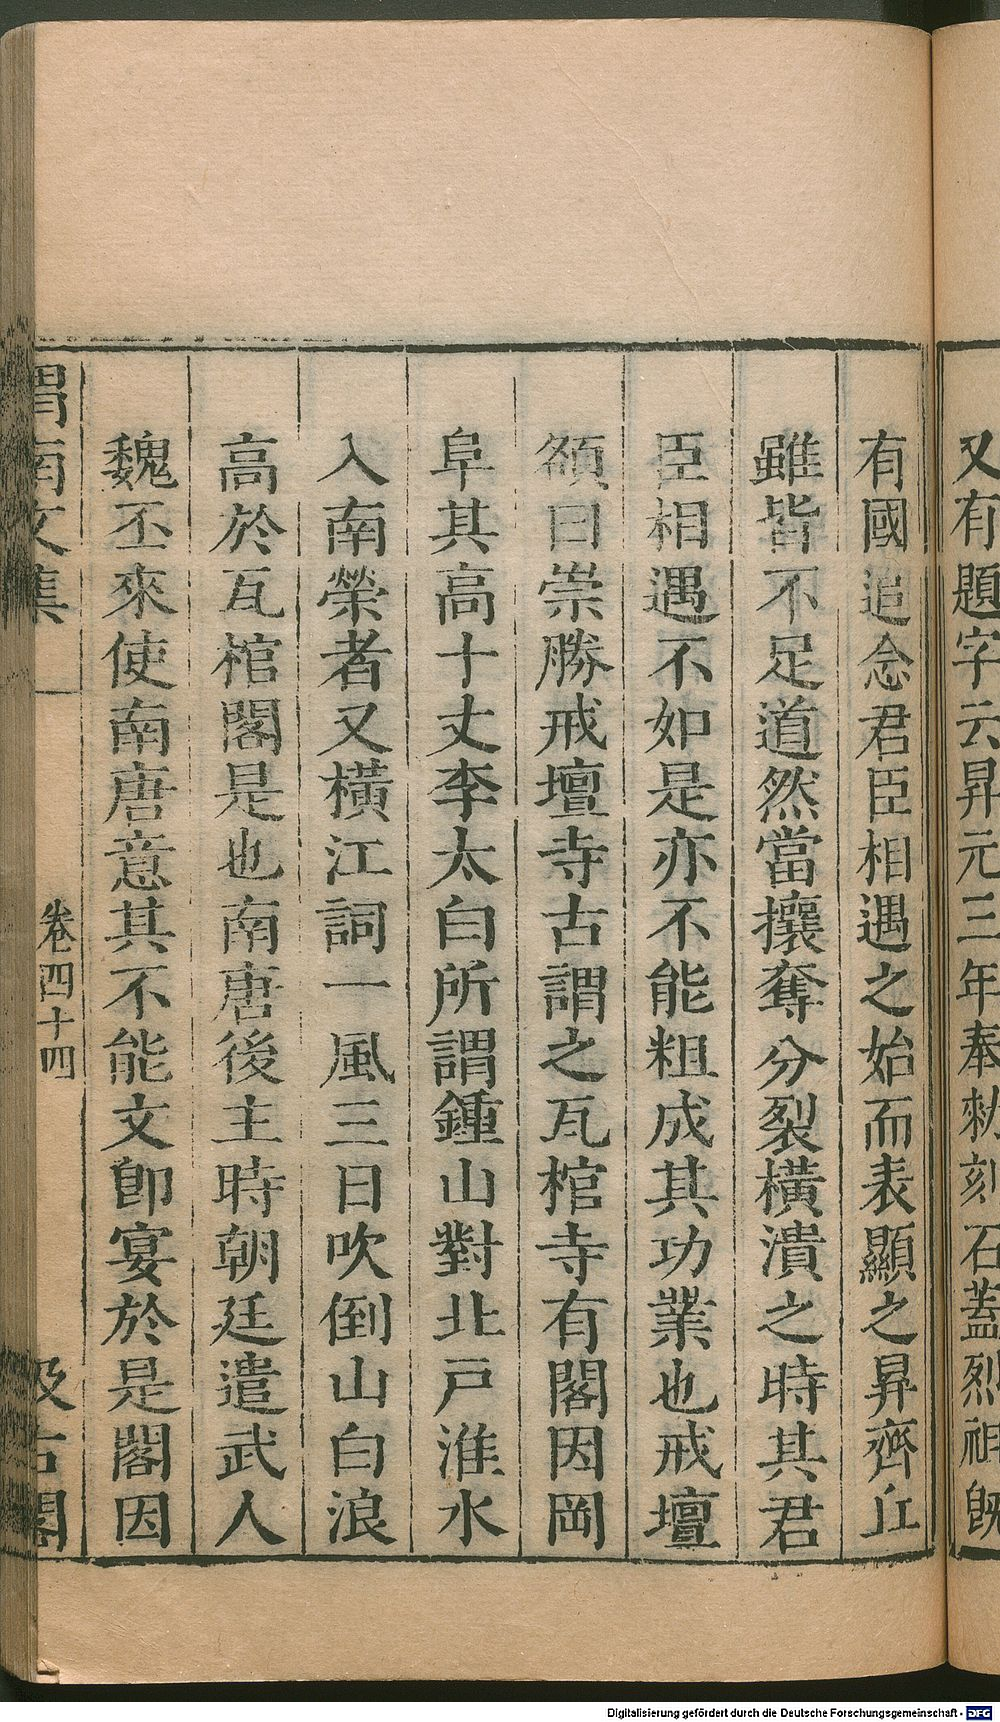 又有題字云昇元三年奉勑刻石蓋烈祖旣
有國追念君臣相遇之始而表顯之昇齊丘
雖皆不足道然當攘奪分裂橫潰之時其君
臣相遇不如是亦不能粗成其功業也戒壇
額曰崇勝戒壇寺古謂之瓦棺寺有閣因岡
阜其高十丈李太白所謂鍾山對北戸淮水
入南榮者又橫江詞一風三日吹倒山白浪
高於瓦棺閣是也南唐後主時朝廷遣武人
魏丕來使南唐意其不能文卽宴於是閣因
渭南文集
卷四十四
汲古閣
Digitalisierung gefördert durch die Deutsche Forschungsgemeinschaft - DFG